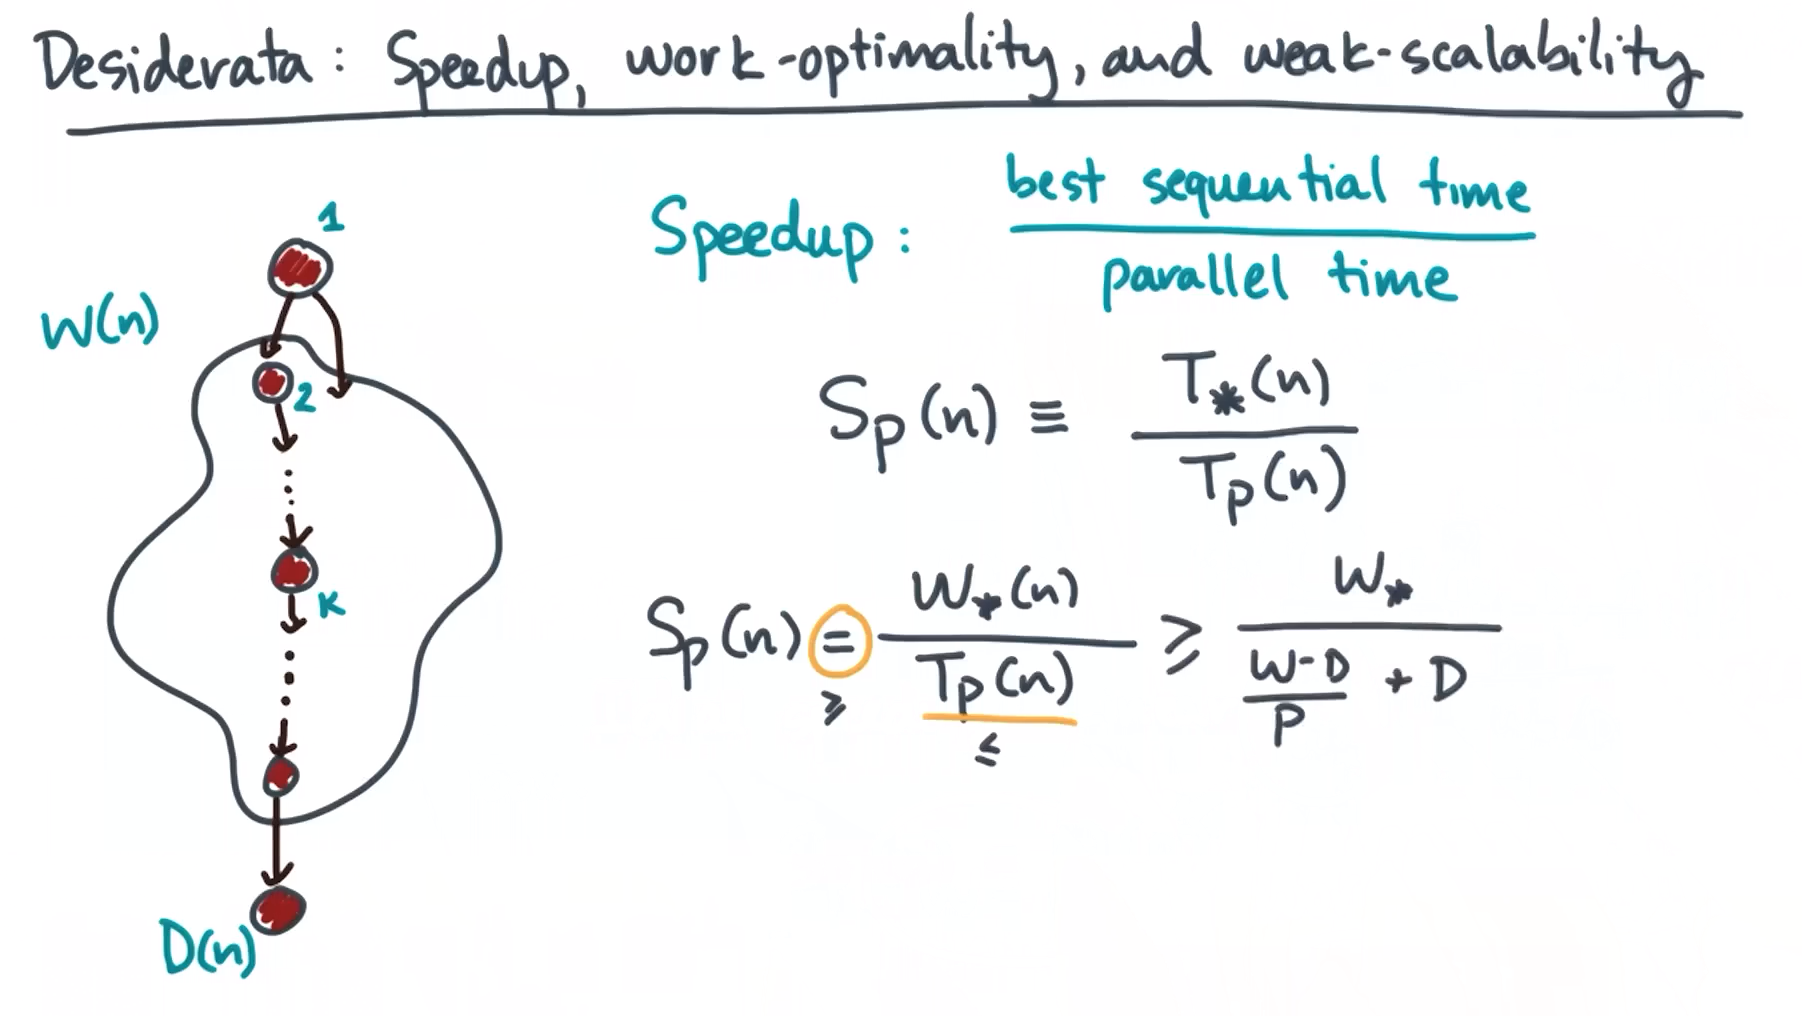 Desiderata: Speedup, work-optimality, and weak-scalability
Speedup: best sequential time
parallel time
Sₚ(n) ≡ T*(n)
Tₚ(n)
Sₚ(n) = W*(n) ≥ W*
Tₚ(n) W-D + D
P
≥
≤
1
W(n)
2
K
D(n)